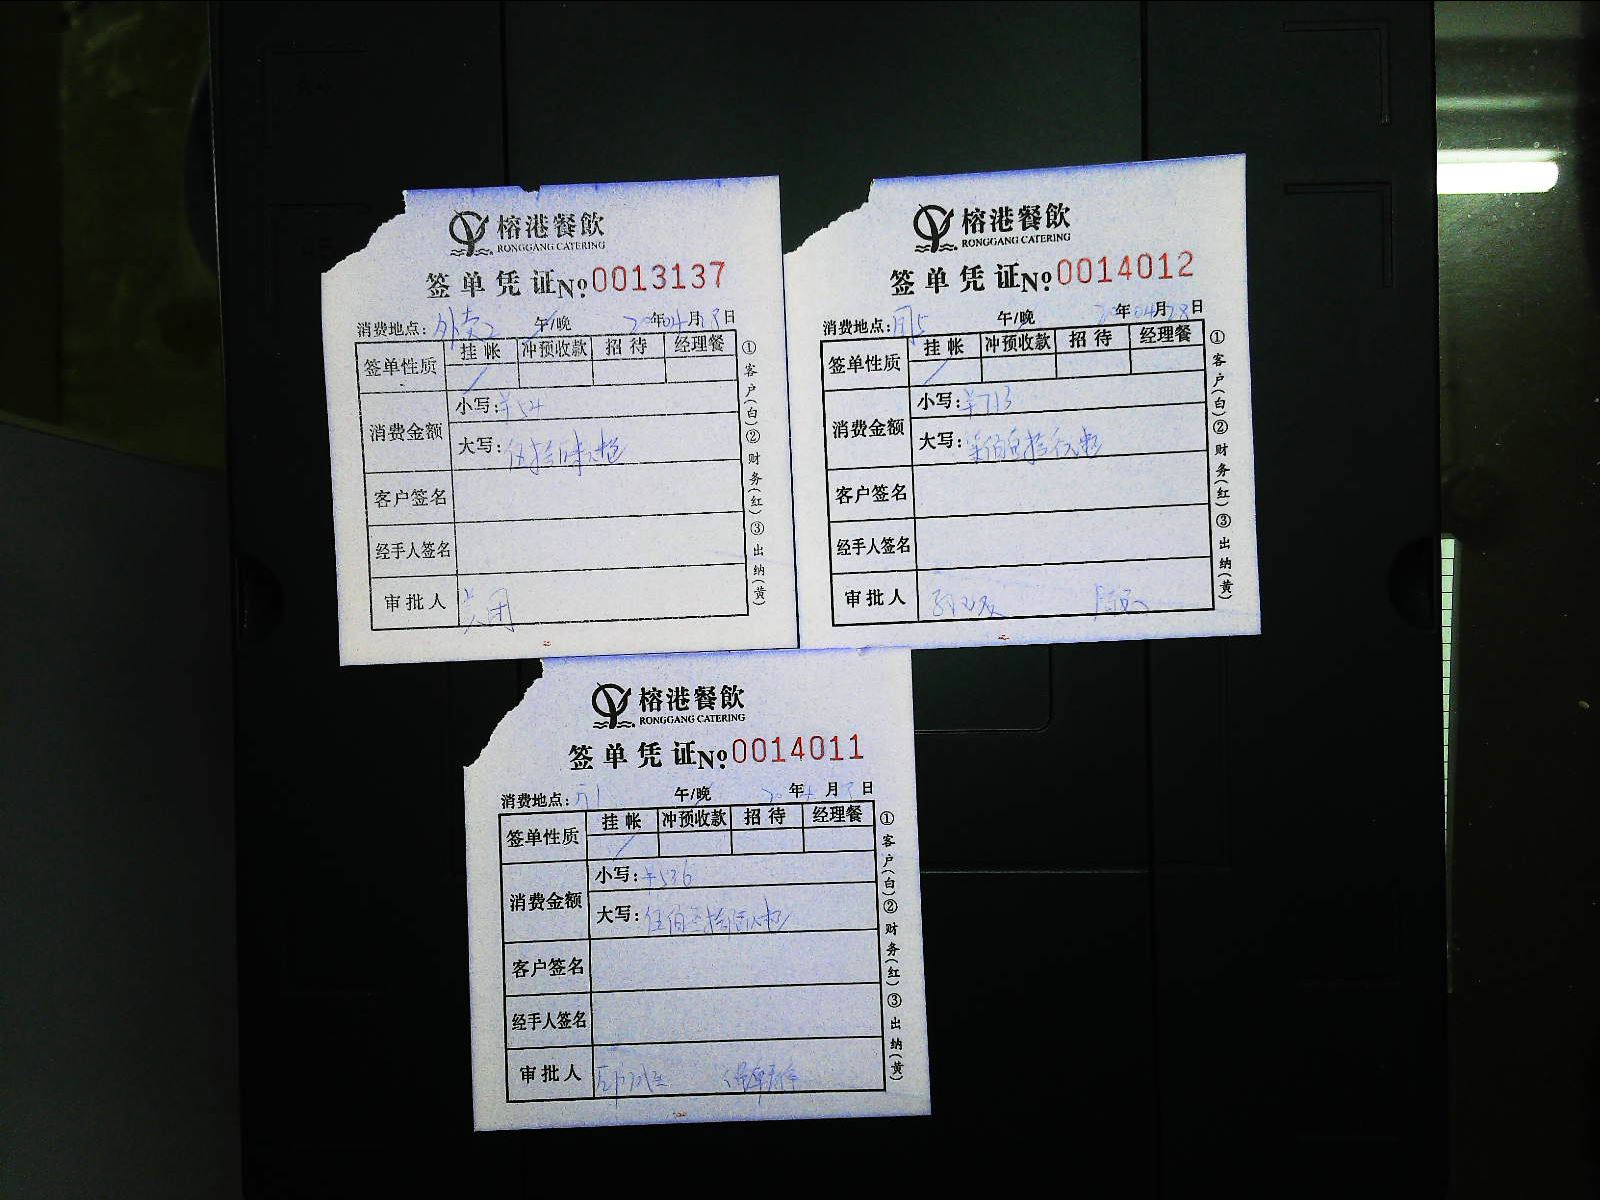 榕港餐飲
RONGGANG CATERING
签单凭证№0013137
消费地点：外卖2 午/晚 20年04月 日
签单性质 挂帐 冲预收款 招待 经理餐
消费金额 小写：¥54
大写：伍拾肆元
客户签名
经手人签名
审批人
①客户(白)②财务(红)③出纳(黄)
榕港餐飲
RONGGANG CATERING
签单凭证№0014012
消费地点： 午/晚 20年04月28日
签单性质 挂帐 冲预收款 招待 经理餐
消费金额 小写：¥713
大写：柒佰壹拾叁元
客户签名
经手人签名
审批人
①客户(白)②财务(红)③出纳(黄)
榕港餐飲
RONGGANG CATERING
签单凭证№0014011
消费地点： 午/晚 20年4月 日
签单性质 挂帐 冲预收款 招待 经理餐
消费金额 小写：¥536
大写：伍佰叁拾陆元
客户签名
经手人签名
审批人
①客户(白)②财务(红)③出纳(黄)